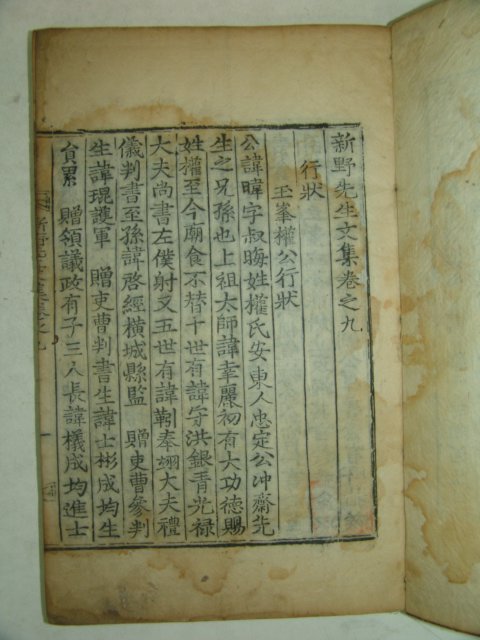 新野先生文集卷之九
行狀
玉峯權公行狀
公諱暐字叔晦姓權氏安東人忠定公冲齋先
生之兄孫也上祖太師諱幸麗初有大功德賜
姓權至今廟食不替十世有諱守洪銀青光祿
大夫尚書左僕射又五世有諱靷奉翊大夫禮
儀判書至孫諱啓經橫城縣監 贈吏曹參判
生諱琨護軍 贈吏曹判書生諱士彬成均生
員累 贈領議政有子三人長諱檥成均進士